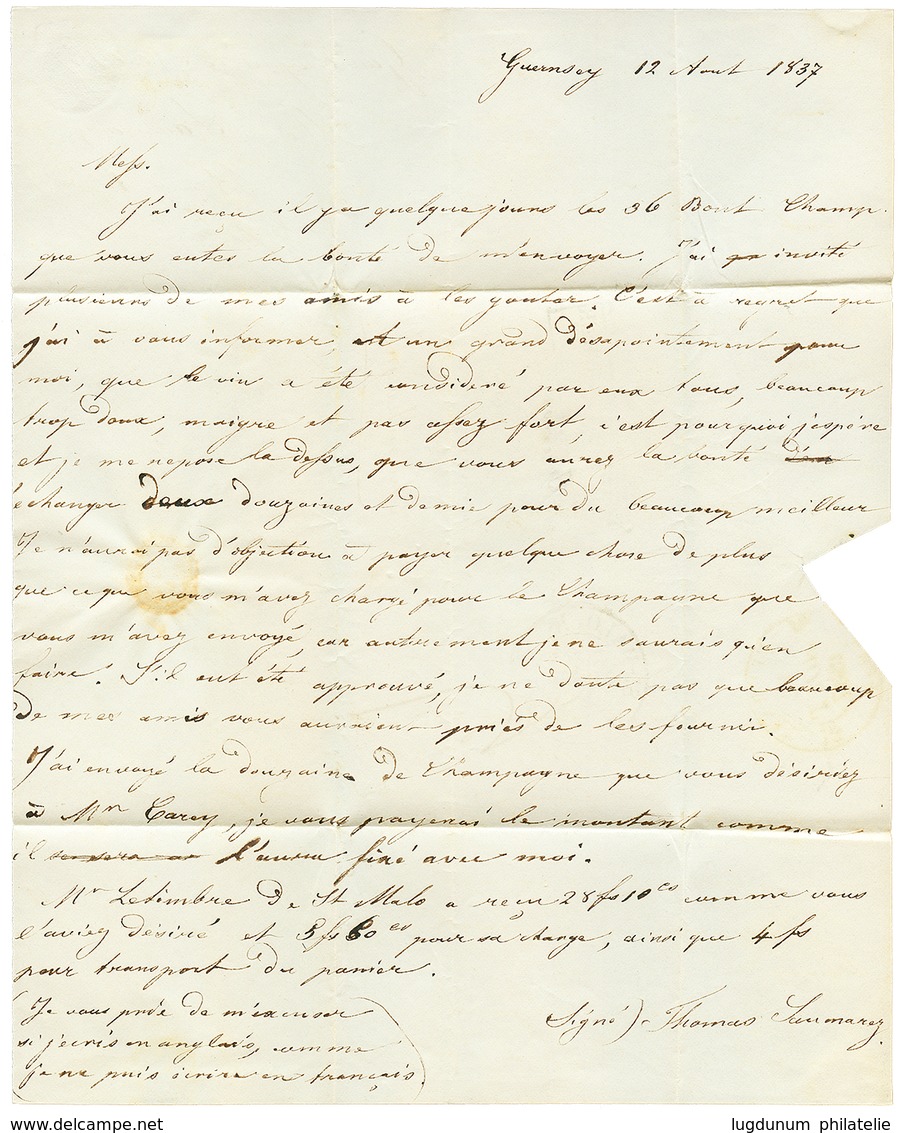 Guernsey 12 Aout 1837
Mess.
J'ai reçu il y a quelque jours les 36 Bout Champ.
que vous eutes la bonté de m'envoyer. J'ai invité
plusieurs de mes amis à les gouter. C'est à regret que
j'ai à vous informer, et un grand désapointement pour
moi, que le vin a été consideré par eux tous, beaucoup
trop doux, maigre et pas assez fort, c'est pourquoi j'espére
et je me repose la dessus, que vous aurez la bonté
échanger deux douzaines et demie pour du beaucoup meilleur
Je n'aurai pas d'objection à payer quelque chose de plus
que ce que vous m'avez chargé pour le Champagne que
vous m'avez envoyé, car autrement je ne saurais qu'en
faire. S'il eut été approuvé, je ne doute pas que beaucoup
de mes amis vous auraient priés de les fournir.
J'ai envoyé la douzaine de Champagne que vous désiriez
à Mr Carey, je vous payerai le montant comme
il l'aura fixé avec moi.
Mr Lesimbre de St Malo a reçu 28 fs 10 cs comme vous
l'aviez désiré et 3 fs 60 cs pour sa charge, ainsi que 4 fs
pour transport du panier.
(Je vous prie de m'excuser
si j'ecris en anglais, comme
je ne puis écrire en français.)
Signé) - Thomas Saumarez
www.delcampe.net
lugdunum philatelie